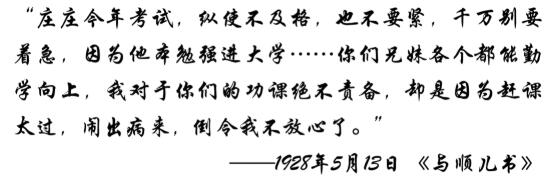 “庄庄今年考试，纵使不及格，也不要紧，千万别要
着急，因为他本勉强进大学……你们兄妹各个都能勤
学向上，我对于你们的功课绝不责备，却是因为赶课
太过，闹出病来，倒令我不放心了。”
——1928年5月13日 《与顺儿书》